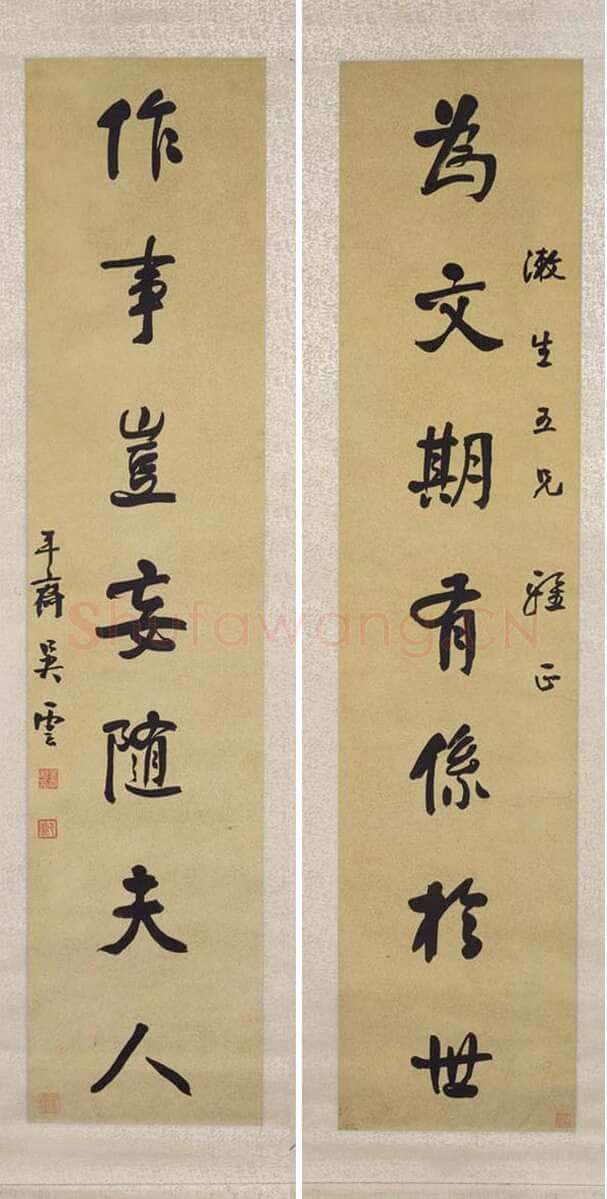 漱生五兄 正
為文期有係於世
作事豈妄隨夫人
平齋吳雲
Shufawang.CN